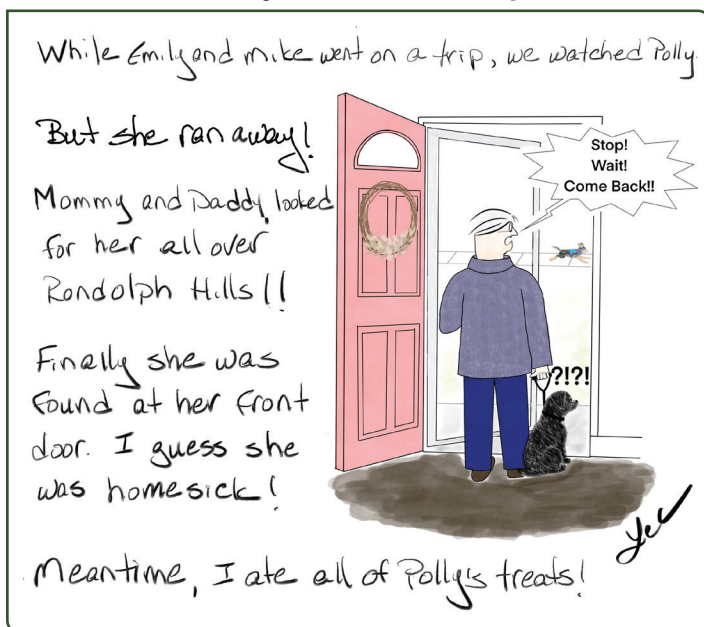 While Emily and Mike went on a trip, we watched Polly.
But she ran away!
Mommy and Daddy looked
for her all over
Randolph Hills!!
Finally she was
found at her front
door. I guess she
was homesick!
Meantime, I ate all of Polly's treats!
Stop!
Wait!
Come Back!!
?!?!